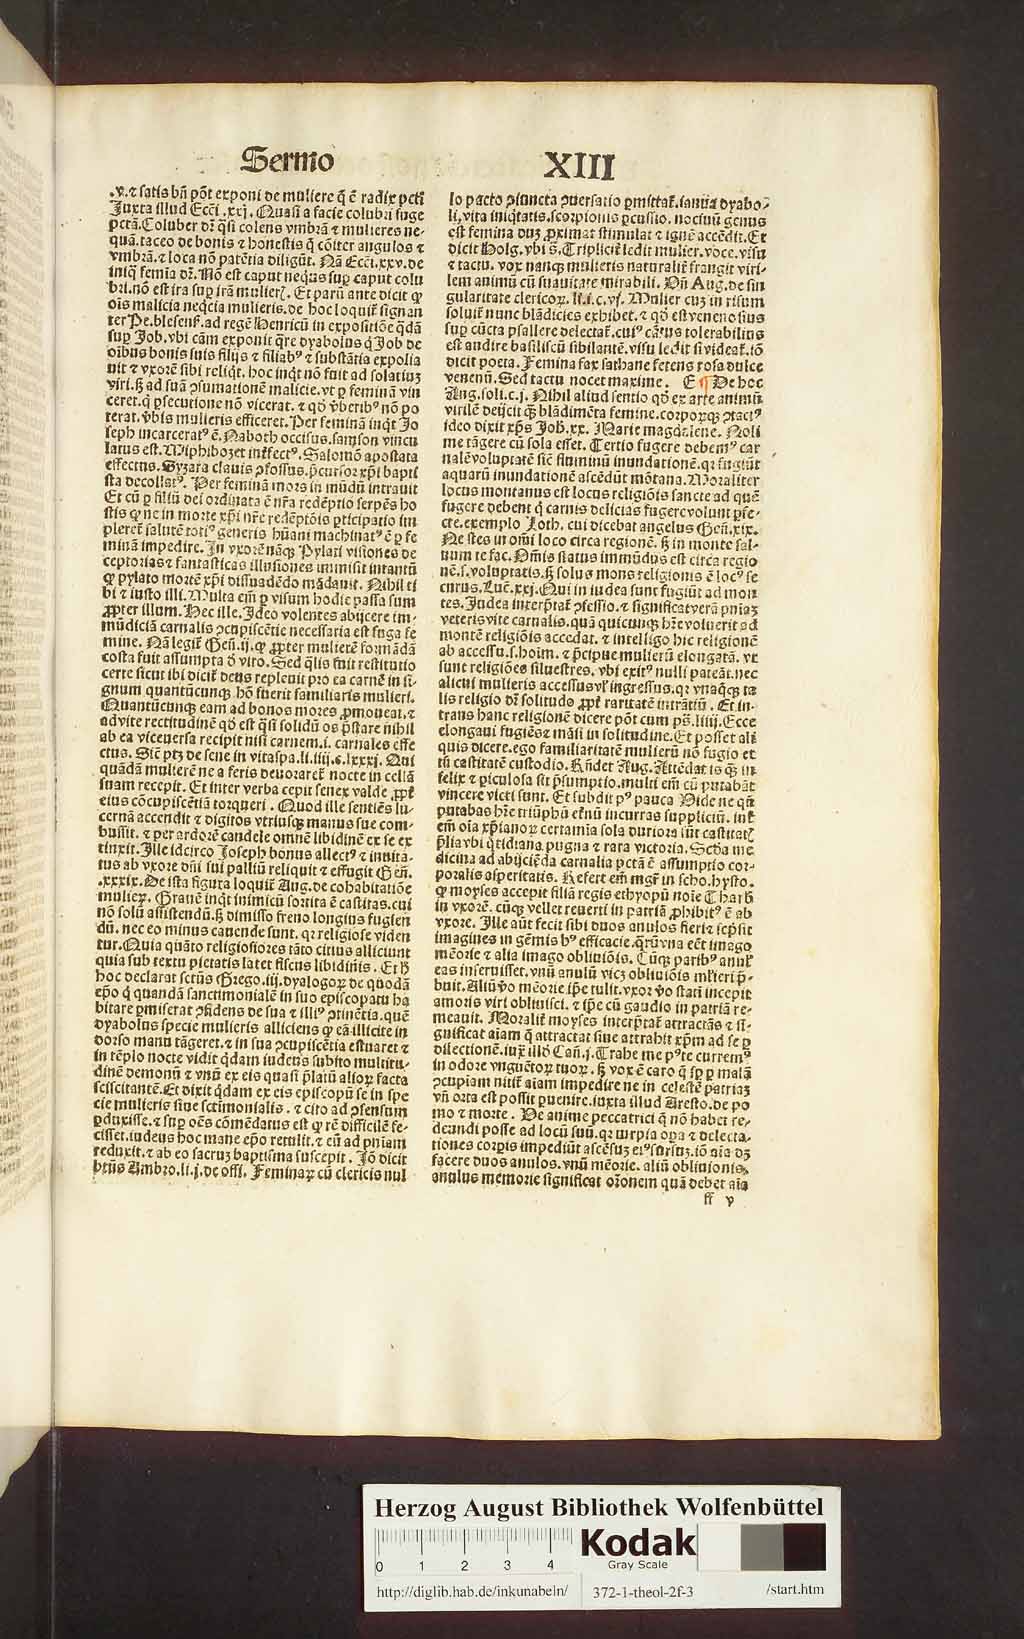 Sermo XIII
.v. ⁊ satis bn̄ pōt exponi de muliere q̄ ē radix pctī
Juxta illud Ecci .xxj. Quasi a facie colubri fuge
pctā. Coluber dr̄ q̄si colens vmbrā ⁊ mulieres ne-
quā. taceo de bonis ⁊ honestis q̄ cōiter angulos ⁊
vmbrā. ⁊ loca nō patētia diligūt. Nā Ecci. xxv. de
iniq̄ femīa dr̄. Nō est caput neq̄us suꝑ caput colu
bri. nō est ira suꝑ irā mulieris. Et parū ante dicit ꝙ
oīs malicia neq̄cia mulieris. de hoc loquiť signan
ter Pe. blesens̄. ad regē Henricū in expositiōe q̄dā
suꝑ Job. vbi cām exponit q̄re dyabolus q̄ Job de
oībus bonis suis filijs ⁊ filiabꝰ ⁊ substātia expolia
uit ⁊ vxorē sibi reliq̄t. hoc inq̄t nō fuit ad solatiuꝫ
viri. sꝫ ad suā ꝯsumationē malicie. vt ꝑ feminā vin
ceret. q̄ ꝑsecutione nō vicerat. ⁊ qd̄ v̄beribꝰ nō po
terat. v̄bis mulieris efficeret. Per feminā inq̄t Jo
seph incarceratꝰ ē. Naboth occisus. samson vincu
latus est. Miphibozet inťfectꝰ. Salomō apostata
effectus. Syzara clauis ꝯfossus. p̄cursor xp̄i bapti
sta decollatꝰ. Per feminā mors in mūdū intrauit
Et cū ꝑ filiū dei ordinata ē nr̄a redēptio serpēs ho
stis ꝙ ne in morte xp̄i nr̄e redēptōis ꝑticipatio im
pleret salutē totiꝰ generis hūani machinatꝰ ē ꝑ fe
minā impedire. In vxorē nāqꝫ Pylati visiones de
ceptorias ⁊ fantasticas illusiones immisit intantū
ꝙ pylato mortē xp̄i dissuadēdo mādauit. Nihil ti
bi ⁊ iusto illi. Multa em̄ ꝑ visum hodie passa sum
ꝓpter illum. Hec ille. Ideo volentes abijcere im-
mūdiciā carnalis ꝯcupiscētie necessaria est fuga fe
mine. Nā legiť Geñ. ij. ꝙ ꝓpter mulierē formādā
costa fuit assumpta d̄ viro. Sed q̄lis fuit restitutio
certe sicut ibi diciť deus repleuit pro ea carnē in si-
gnum quantūcunqꝫ hō fuerit familiaris mulieri.
Quantūcunqꝫ eam ad bonos mores ꝓmoueat. ⁊
ad vite rectitudinē qd̄ est q̄si solidū os p̄stare nihil
ab ea viceuersa recipit nisi carnem. i. carnales effe
ctus. Sic̄ ptꝫ de sene in vitaspa. li. iiij. c. lxxxj. Qui
quādā mulierē ne a feris deuorareť nocte in cellā
suam recepit. Et inter verba cepit senex valde ꝓpť
eius cōcupiscētiā torqueri. Quod ille sentiēs lu-
cernā accendit ⁊ digitos vtriusqꝫ manus sue com-
bussit. ⁊ per ardorē candele omnē libidinē ex se ex
tinxit. Ille idcirco Joseph bonus allectꝰ ⁊ inuita-
tus ab vxore dn̄i sui palliū reliquit ⁊ effugit Geñ.
.xxxix. De ista figura loquiť Aug. de cohabitatiōe
mulieꝝ. Grauē inq̄t inimicū sortita ē castitas. cui
nō solū assistendū. sꝫ dimisso freno longius fugien
dū. nec eo minus cauende sunt. qꝛ religiose viden
tur. Quia quāto religiosiores tāto citius alliciunt
quia sub textu pietatis latet fiscus libidinis. Et h̄
hoc declarat sctūs Grego. iij. dyalogoꝝ de quodā
epō q̄ quandā sanctimonialē in suo episcopatu ha
bitare ꝑmiserat ꝯfidens de sua ⁊ illiꝰ ꝯtinētia. quē
dyabolus specie mulieris alliciens ꝙ eā illicite in
dorso manu tāgeret. ⁊ in sua ꝯcupiscētia estuaret ⁊
in tēplo nocte vidit q̄dam iudeus subito multitu-
dinē demonū ⁊ vnū ex eis quasi p̄latū alioꝝ facta
sciscitantē. Et dixit q̄dam ex eis episcopū se in spe
cie mulieris siue sctīmonialis. ⁊ cito ad ꝯsensum
ꝑduxisse. ⁊ suꝑ oēs cōmēdatus est ꝙ rē difficilē fe-
cisset. iudeus hoc mane epō rettulit. ⁊ eū ad pn̄iam
reduxit. ⁊ ab eo sacrum baptisma suscepit. Jō dicit
btūs Ambro. li. j. de offi. Feminaꝝ cū clericis nul
lo pacto ꝯiuncta ꝯuersatio ꝑmittať. ianua dyabo-
li, vita iniq̄tatis. scorpionis ꝑcussio. nociuū genus
est femina duꝫ ꝓximat stimulat ⁊ ignē accēdit. Et
dicit Holg. vbi s̄. Tripliciť ledit mulier. voce. visu
⁊ tactu. vox nanqꝫ mulieris naturaliť frangit viri-
lem animū cū suauitate mirabili. Vn̄ Aug. de sin
gularitate clericoꝝ. li. i. c. vj. Mulier cuꝫ in risum
soluiť nunc blādicies exhibet. ⁊ qd̄ est venenosius
suꝑ cūcta psallere delectať. cuiꝰ cātus tolerabilius
est audire basiliscū sibilantē. visu ledit si videať. iō
dicit poeta. Femina fax sathane fetens rosa dulce
venenū. Sed tactu nocet maxime. E ¶ De hoc
Aug. soli. c. j. Nihil aliud sentio qd̄ ex arte animū
virilē deijcit qꝫ blādimēta femine. corpoꝝqꝫ ꝯtactꝰ
ideo dixit xp̄s Joh̄. xx. Marie magdalene. Noli
me tāgere cū sola esset. Tertio fugere debemꝰ car
nalē voluptatē sic̄ fluminū inundationē. qꝛ fugiūt
aquarū inundationē ascēdūt mōtana. Moraliter
locus montanus est locus religiōis sancte ad quē
fugere debent q̄ carnis delicias fugere volunt ꝑfe-
cte. exemplo Loth. cui dicebat angelus Geñ. xix.
Ne stes in om̄i loco circa regionē. sꝫ in monte sal-
uum te fac. Om̄is status immūdus est circa regio
nē. s. voluptatis. sꝫ solus mons religionis ē locꝰ se
curus. Luc̄. xxj. Qui in iudea sunt fugiūt ad mon
tes. Judea interp̄tať ꝯfessio. ⁊ significat verā pn̄iaꝫ
veteris vite carnalis. quā quicunqꝫ hr̄e voluerit ad
montē religiōis accedat. ⁊ intelligo hic religionē
ab accessu. s. hoim̄. ⁊ p̄cipue mulierū elongatā. vt
sunt religiōes siluestres. vbi exitꝰ nulli pateāt. nec
alicui mulieris accessus vl̓ ingressus. qꝛ vnaqueqꝫ ta
lis religio dr̄ solitudo ꝓpť raritatē intrātiū. Et in-
trans hanc religionē dicere pōt cum ps̄. liiij. Ecce
elongaui fugiēs ⁊ māsi in solitudine. Et posset ali
quis dicere. ego familiaritatē mulierū nō fugio et
tn̄ castitatē custodio. Rn̄det Aug. Attēdat is qꝫ in-
felix ⁊ ꝑiculosa sit p̄sumptio. multi em̄ cū putabāt
vincere victi sunt. Et subdit pꝰ pauca Vide ne qn̄
putabas hr̄e triūphū et̄nū incurras suppliciū. inť
em̄ oīa xp̄ianoꝝ certamīa sola duriora sūt castitatꝭ
p̄lia vbi q̄tidiana pugna ⁊ rara victoria. Scd̄a me
dicina ad abijciēda carnalia pctā ē assumptio cor-
poralis asperitatis. Refert em̄ mgr̄ in scho. hysto.
ꝙ moyses accepit filiā regis ethyopū noīe Tharb̄
in vxorē. cūqꝫ vellet reuerti in patriā ꝓhibitꝰ ē ab
vxore. Ille aūt fecit sibi duos anulos fieri ⁊ scp̄sit
imagines in gēmis hꝰ efficacie. q̄rū vna eēt imago
mēorie ⁊ alia imago obliuiōis. Cūqꝫ paribꝰ anuľ
eas inseruisset. vnū anulū vicꝫ obliuiōis mľieri p̄-
buit. Aliū v̄o mēorie ip̄e tulit. vxor v̄o statī incepit
amoris viri obliuisci. ⁊ ip̄e cū gaudio in patriā re-
meauit. Moraliť moyses interp̄tať attractās ⁊ si-
gnificat aīam q̄ attractat siue attrahit xp̄m ad se ꝑ
dilectionē. iux̄ illd̓ Cañ. j. Trahe me pꝰ te curremꝰ
in odore vnguētoꝝ tuoꝝ. sꝫ vxoꝛ ē caro q̄ sꝑ ꝑ malā
ꝯcupiam nitiť aīam impedire ne in celestē patriaꝫ
vn̄ orta est possit ꝑuenire. iuxta illud Aresto. de po
mo ⁊ morte. De anime peccatrici q̄ nō habet re-
deundi posse ad locū suū. qꝛ turpia oꝑa ⁊ delecta-
tiones corꝑis impediūt ascēsuꝫ eiꝰ sursuꝫ. iō aīa dꝫ
facere duos anulos. vnū mēorie. aliū obliuionis.
anulus memorie significat or̄onem quā debet aīa
ff v
Herzog August Bibliothek Wolfenbüttel
0 1 2 3 4
Kodak
Gray Scale
http://diglib.hab.de/inkunabeln/ 372-1-theol-2f-3 /start.htm